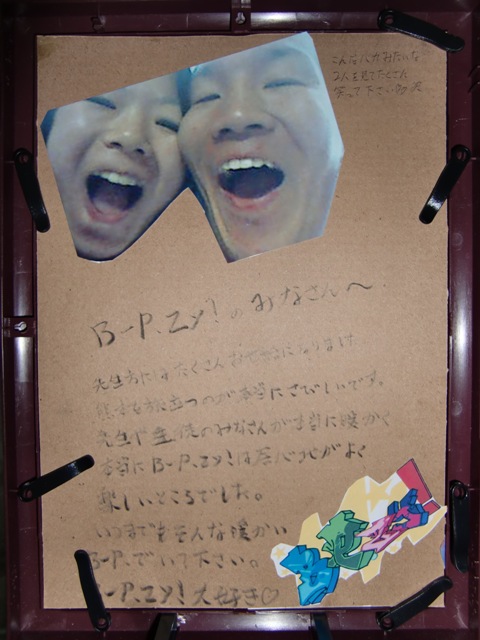 こんなバカみたいな
2人を見てたくさん
笑って下さい
B-P、Zy!のみなさんへ
先生方にはたくさんお世話になりました
熊本を旅立つのが本当にさびしいです。
先生や生徒のみなさんが本当に暖かく
本当にB-P、Zy!は居心地がよく
楽しいところでした。
いつまでもそんな暖かい
B-P、でいて下さい。
B-P、Zy!大好き♡